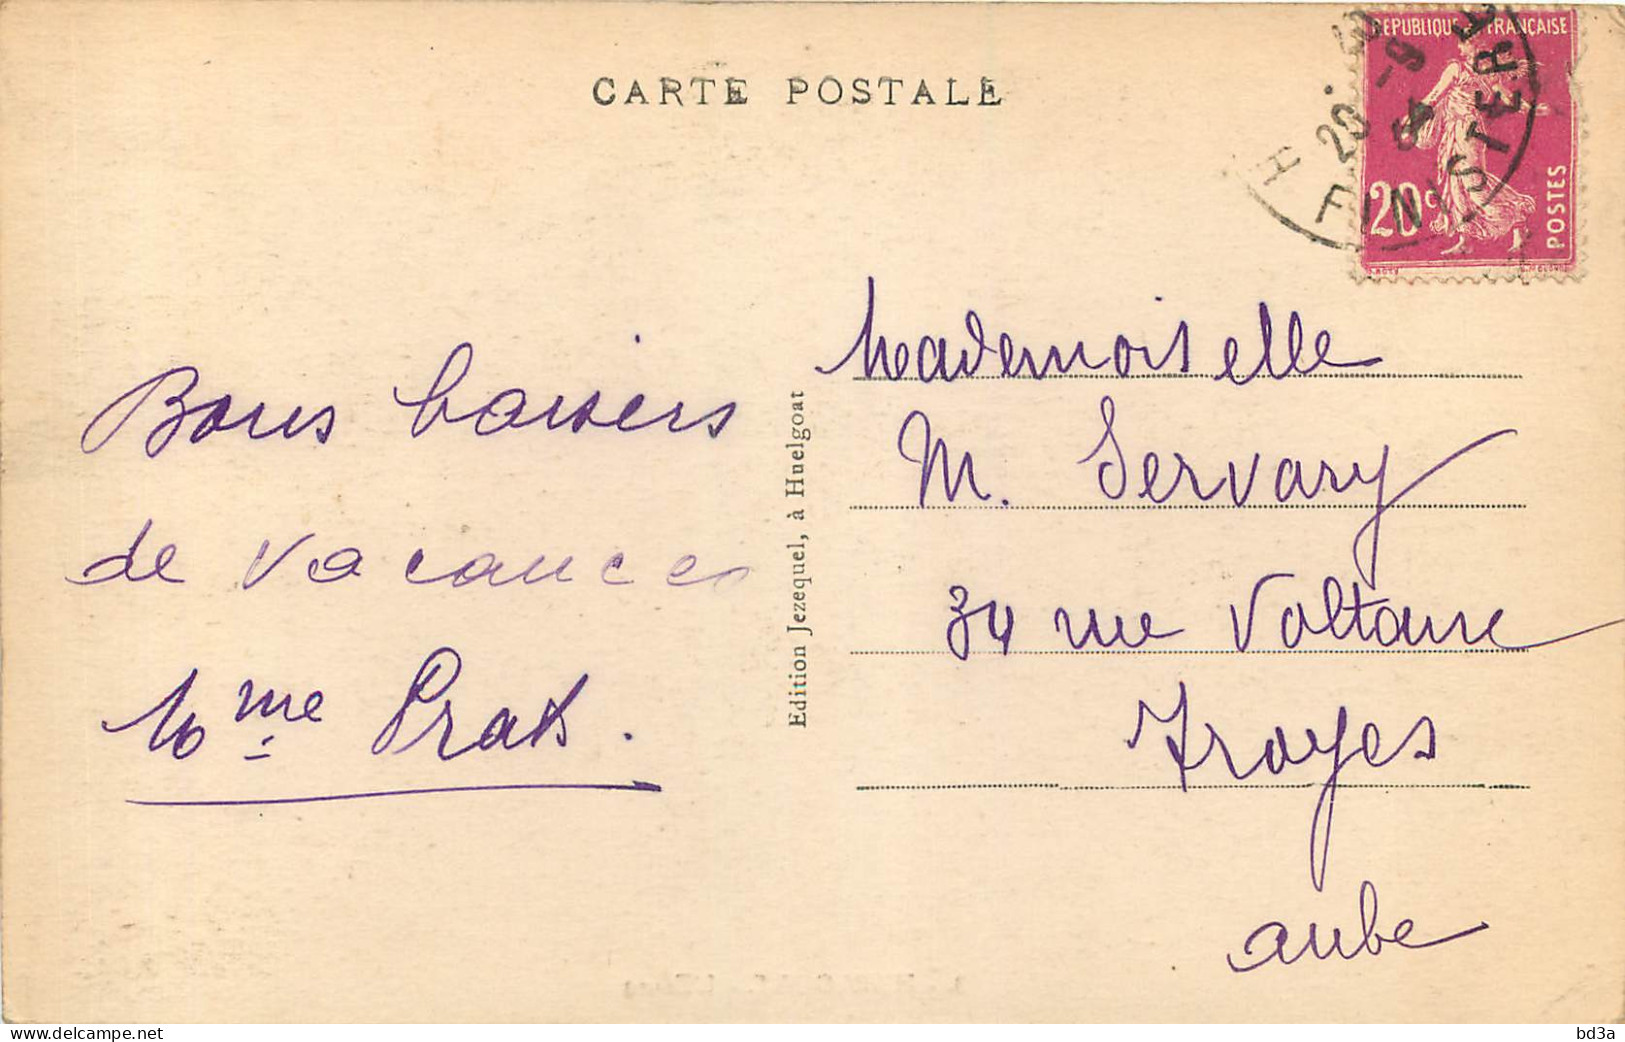 CARTE POSTALE
REPUBLIQUE FRANÇAISE
20c
POSTES
FINISTERE
20
Bons baisers
de vacances
Mme Prats.
Edition Jezequel, à Huelgoat
Mademoiselle
M. Servary
34 rue Voltaire
Troyes
aube
delcampe.net
bd3a